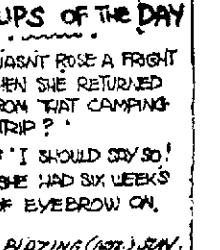 UPS OF THE DAY
WASN'T ROSE A FRIGHT
HEN SHE RETURNED
ROM THAT CAMPING
TRIP?
"I SHOULD SAY SO!
SHE HAD SIX WEEKS
EYEBROW ON.
BLAZING